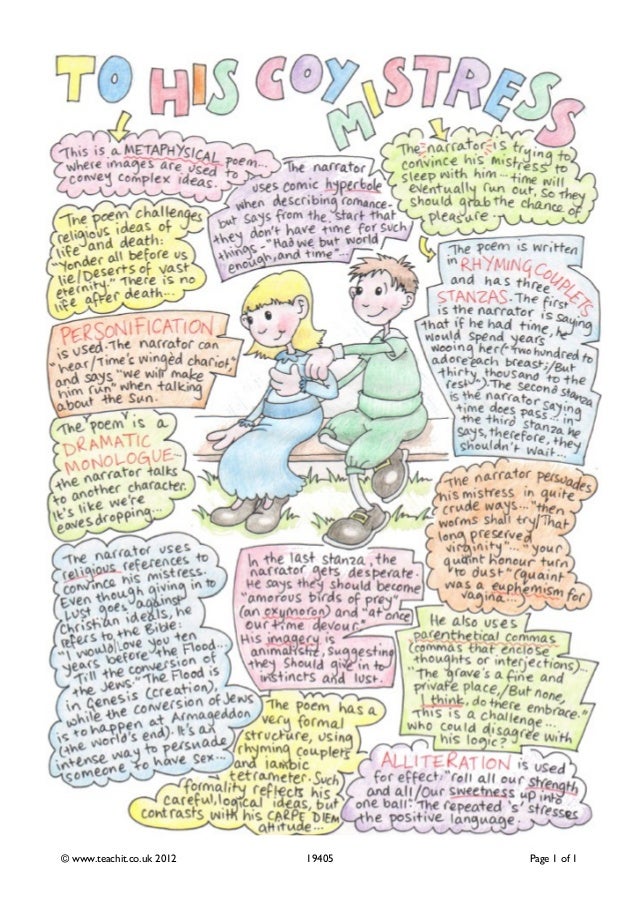 TO HIS COY
MISTRESS
This is a METAPHYSICAL poem...
where images are used to
convey complex ideas.
The narrator
uses comic hyperbole
when describing romance -
but says from the start that
they don't have time for such
things - "Had we but world
enough, and time"...
The narrator is trying to
convince his mistress to
sleep with him... time will
eventually run out, so they
should grab the chance of
pleasure...
The poem challenges
religious ideas of
life and death:
"Yonder all before us
lie/Deserts of vast
eternity." There is no
life after death...
The poem is written
in RHYMING COUPLETS
and has three
STANZAS. The first
is the narrator saying
that if he had time, he
would spend years
wooing her ("two hundred to
adore each breast;/But
thirty thousand to the
rest".) The second stanza
is the narrator saying
time does pass... in
the third stanza he
says, therefore, they
shouldn't wait...
PERSONIFICATION
is used. The narrator can
"hear/Time's winged chariot,"
and says "we will make
him run" when talking
about the Sun.
The poem is a
DRAMATIC
MONOLOGUE...
the narrator talks
to another character.
It's like we're
eavesdropping...
The narrator persuades
his mistress in quite
crude ways... "then
worms shall try/That
long preserved
virginity"... "your
quaint honour turn
to dust" (quaint
was a euphemism for
vagina...)
The narrator uses
religious references to
convince his mistress.
Even though giving in to
Lust goes against
Christian ideals, he
refers to the Bible:
"I would/Love you ten
years before the Flood...
Till the conversion of
the Jews." The Flood is
in Genesis (creation),
while the conversion of Jews
is to happen at Armageddon
(the world's end). It's an
intense way to persuade
someone to have sex...
In the last stanza, the
narrator gets desperate.
He says they should become
"amorous birds of prey"
(an oxymoron) and "at once
our time devour."
His imagery is
animalistic, suggesting
they should give in to
instincts and lust.
He also uses
parenthetical commas
(commas that enclose
thoughts or interjections)...
"The grave's a fine and
private place,/But none,
I think, do there embrace."
This is a challenge...
who could disagree with
his logic?
The poem has a
very formal
structure, using
rhyming couplets
and iambic
tetrameter. Such
formality reflects his
careful, logical ideas, but
contrasts with his CARPE DIEM
attitude...
ALLITERATION is used
for effect: "roll all our strength
and all/Our sweetness up into
one ball." The repeated 's' stresses
the positive language.
© www.teachit.co.uk 2012 19405 Page 1 of 1